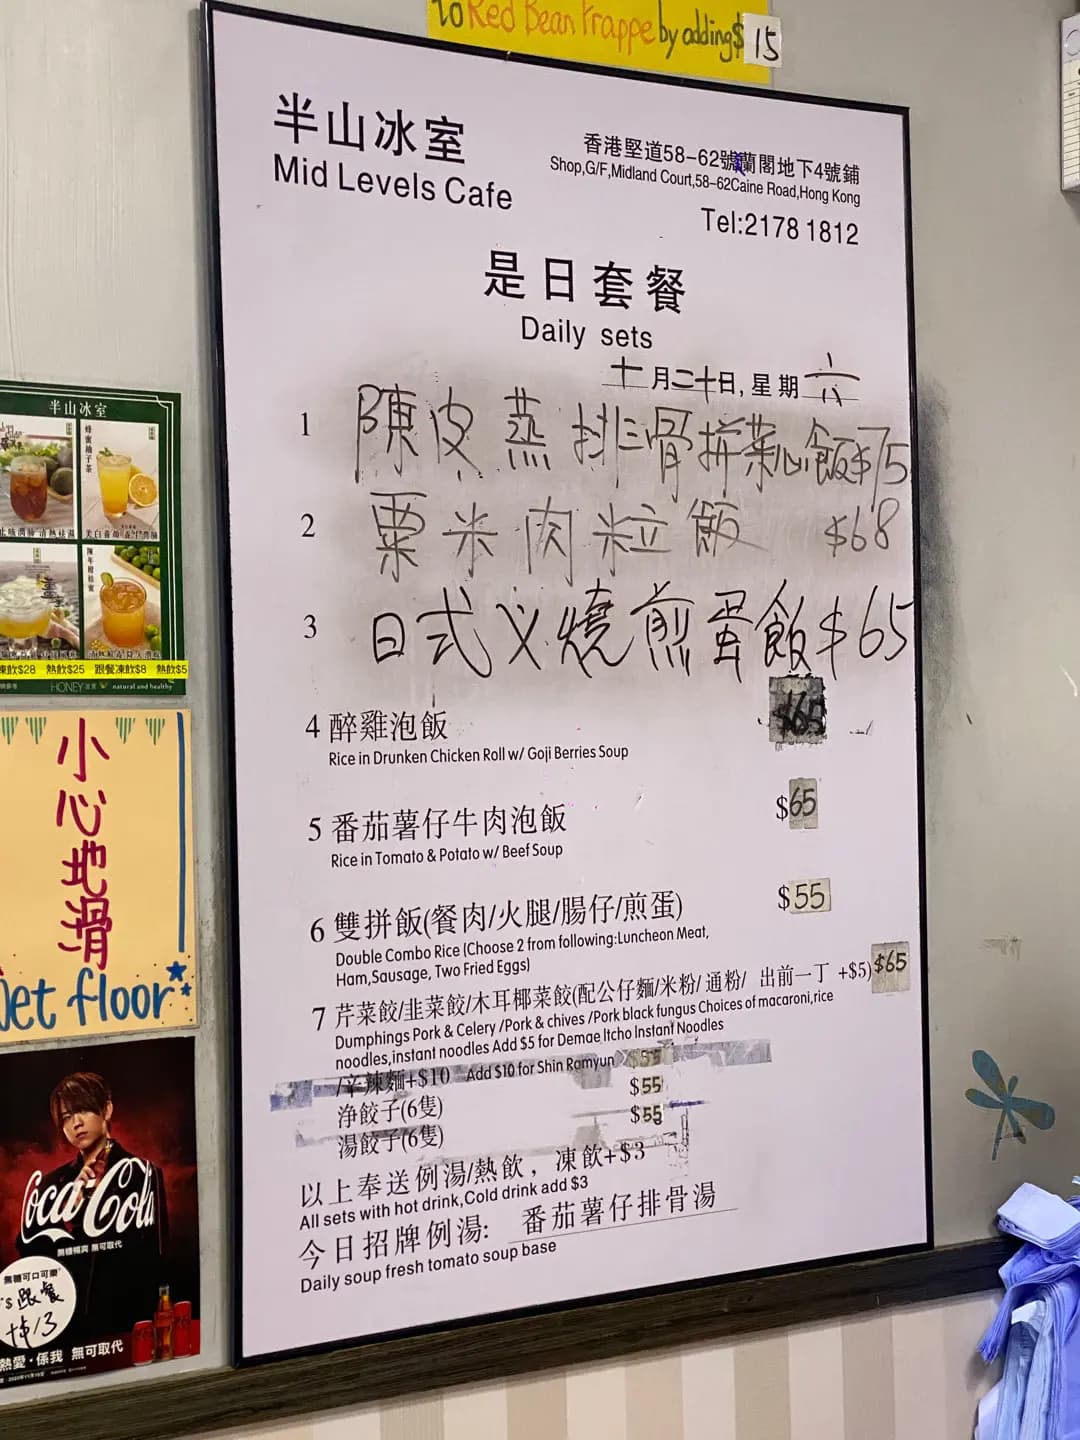 to Red Bean Frappe by adding $15
半山冰室
Mid Levels Cafe
香港堅道58-62號蘭閣地下4號鋪
Shop,G/F,Midland Court,58-62Caine Road,Hong Kong
Tel:2178 1812
是日套餐
Daily sets
十月二十日,星期六
1 陳皮蒸排骨拼菜心飯$75
2 粟米肉粒飯 $68
3 日式叉燒煎蛋飯$65
4 醉雞泡飯 $65
Rice in Drunken Chicken Roll w/ Goji Berries Soup
5 番茄薯仔牛肉泡飯 $65
Rice in Tomato & Potato w/ Beef Soup
6 雙拼飯(餐肉/火腿/腸仔/煎蛋) $55
Double Combo Rice (Choose 2 from following:Luncheon Meat,
Ham,Sausage, Two Fried Eggs)
7 芹菜餃/韭菜餃/木耳椰菜餃(配公仔麵/米粉/通粉/ 出前一丁 +$5) $65
Dumphings Pork & Celery /Pork & chives /Pork black fungus Choices of macaroni,rice
noodles,instant noodles Add $5 for Demae Itcho Instant Noodles
/辛辣麵+$10 Add $10 for Shin Ramyun
净餃子(6隻) $55
湯餃子(6隻) $55
以上奉送例湯/熱飲，凍飲+$3
All sets with hot drink,Cold drink add $3
今日招牌例湯: 番茄薯仔排骨湯
Daily soup fresh tomato soup base
半山冰室
蜂蜜柚子茶
凍飲$28 熱飲$25 跟餐凍飲$8 熱飲$5
HONEY natural and healthy
小心地滑
Wet floor
Coca-Cola
無糖暢爽 無可取代
無糖可口可樂
$ 跟餐
+$13
熱愛·係我 無可取代